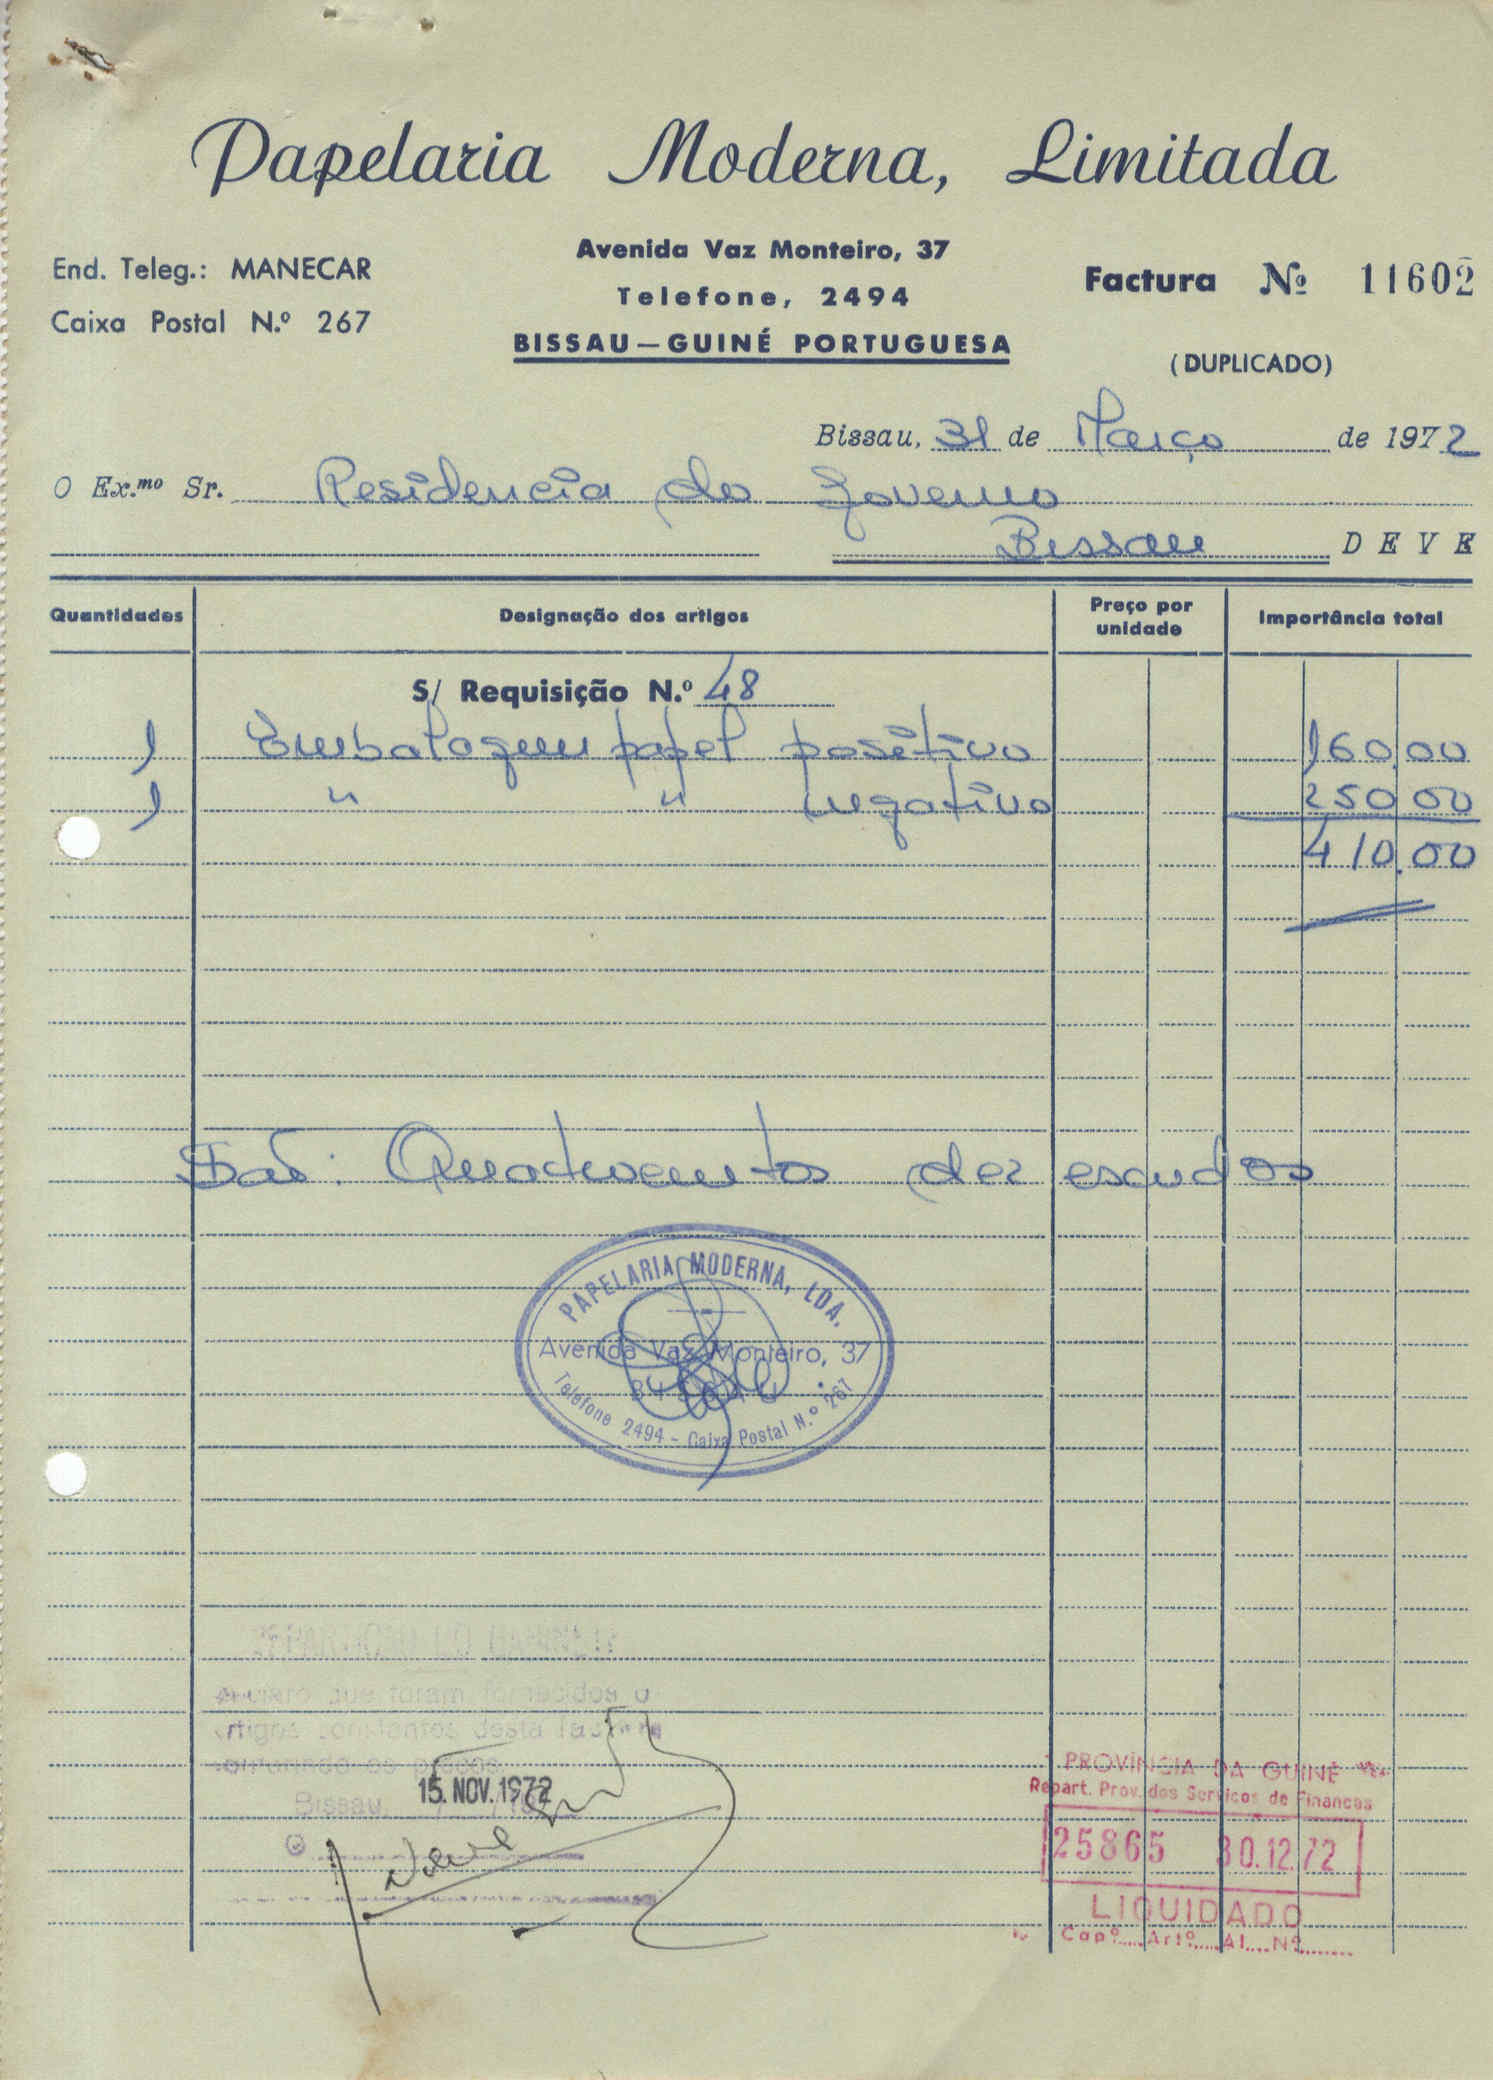 Papelaria Moderna, Limitada
Avenida Vaz Monteiro, 37
End. Teleg.: MANECAR
Telefone, 2494
Factura Nº 11602
Caixa Postal N.º 267
BISSAU — GUINÉ PORTUGUESA
(DUPLICADO)
Bissau, 31 de Março de 1972
O Ex.mo Sr. Residencia do Governo
Bissau DEVE
Quantidades Designação dos artigos Preço por unidade Importância total
S/ Requisição N.º 48
1 Embalagem papel positivo 160,00
1 " " negativo 250,00
410,00
São: Quatrocentos dez escudos
PAPELARIA MODERNA, LDA.
Avenida Vaz Monteiro, 37
Telefone 2494 - Caixa Postal N.º 267
REPARTIÇÃO DO GABINETE
que foram fornecidos o
artigos constantes desta factura
os preços
Bissau,
15. NOV. 1972
PROVÍNCIA DA GUINÉ
Repart. Prov. dos Serviços de Finanças
25865 30.12.72
LIQUIDADO
Capº.... Artº.... Al.... Nº